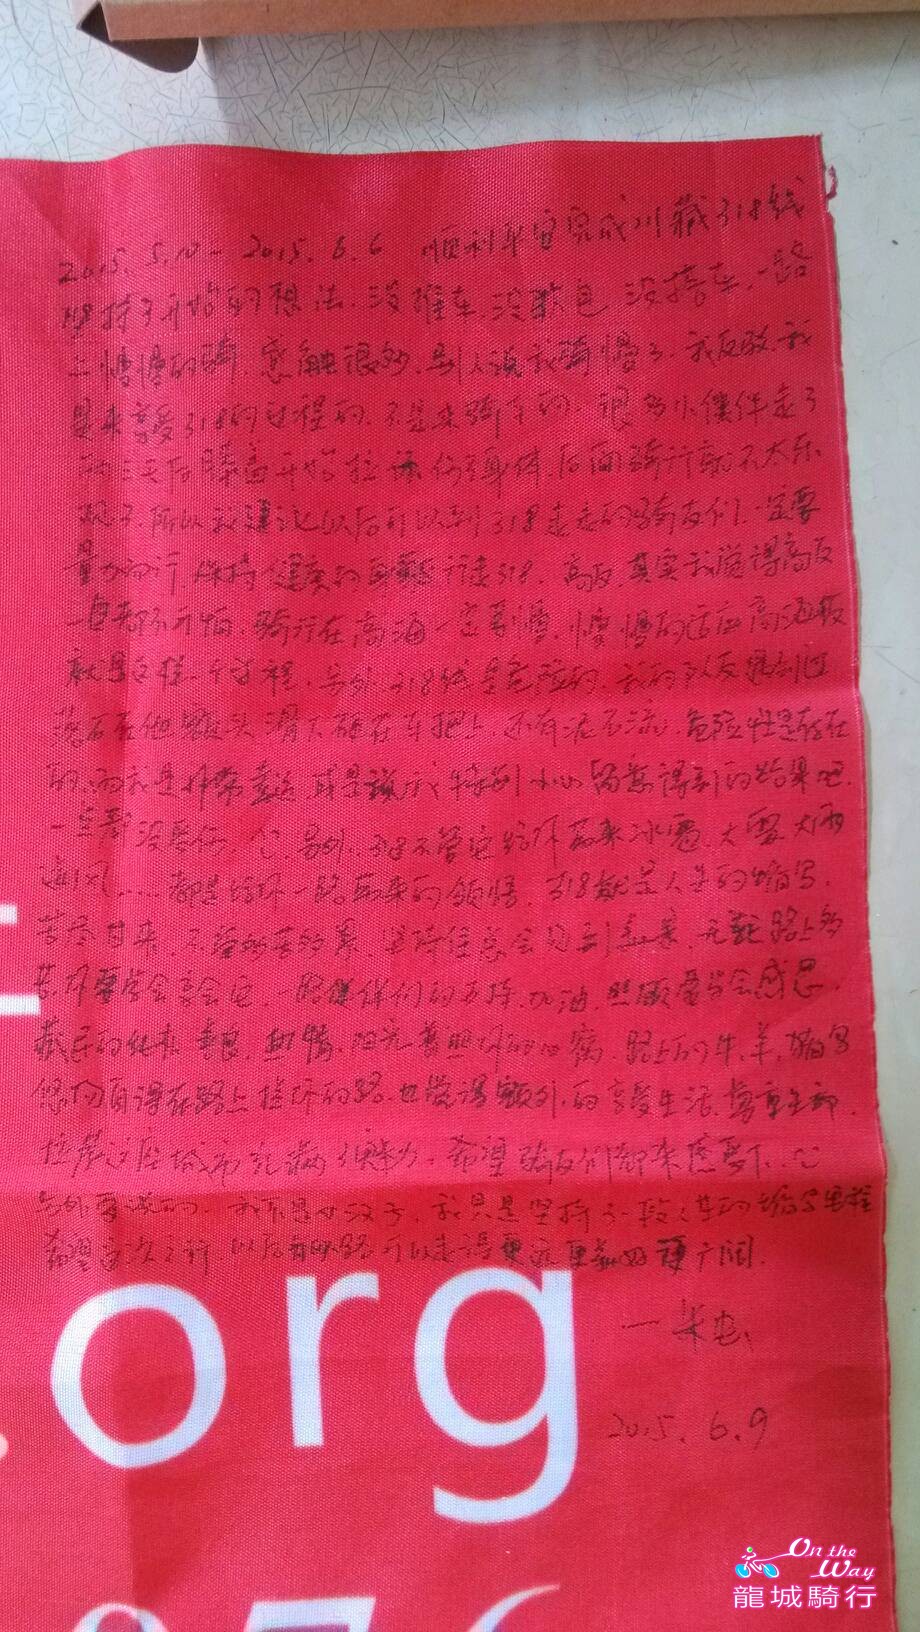 2015.5.10 - 2015.6.6 顺利平安完成川藏318线
坚持了开始的想法.没推车.没驮包 没搭车.一路
上慢慢的骑 感触很多.别人说我骑慢了.我反驳.我
是来享受318的过程的.不是来骑车的.很多小伙伴走了
两三天后膝盖开始拉 伤了身体.后面骑行就不太乐
观了.所以我建议以后可以到318走走的骑友们.一定要
量力而行.保持健康的 行走318.高反.其实我觉得高反
一点都不可怕.骑行在高海 一定要慢.慢慢的适应高海拔
就是这样一个过程.另外.318线是危险的.我的队友遇到过
落石在他 头 滑下砸在车把上.还有泥石流.危险性是存在
的.而我是非常幸运.或是说我特别小心留意得到的结果吧.
一点都没 .另外.318不管它给你带来冰雹.大雪.大雨
逆风......都是给你一路带来的领悟.318就是人生的缩写.
苦尽甘来.不管多苦多累.坚持住总会见到美景.无论路上多
苦你要学会享受它.一路伙伴们的支持.加油.照顾要学会感恩.
藏民的纯朴 善良.热情.阳光普照你的心窝.路上的牛.羊.猪
悠闲自得在路上挡你的路.也觉得额外.的享受生活.
拉萨这座城市充满了魅力.希望骑友们都来感受下.
另外要说的.我不是女汉子.我只是坚持了一段人生的缩写里程
希望言次之行 以后 路可以走得更远更美好更广阔.
一米虫
2015.6.9
.org
On the Way
龍城騎行